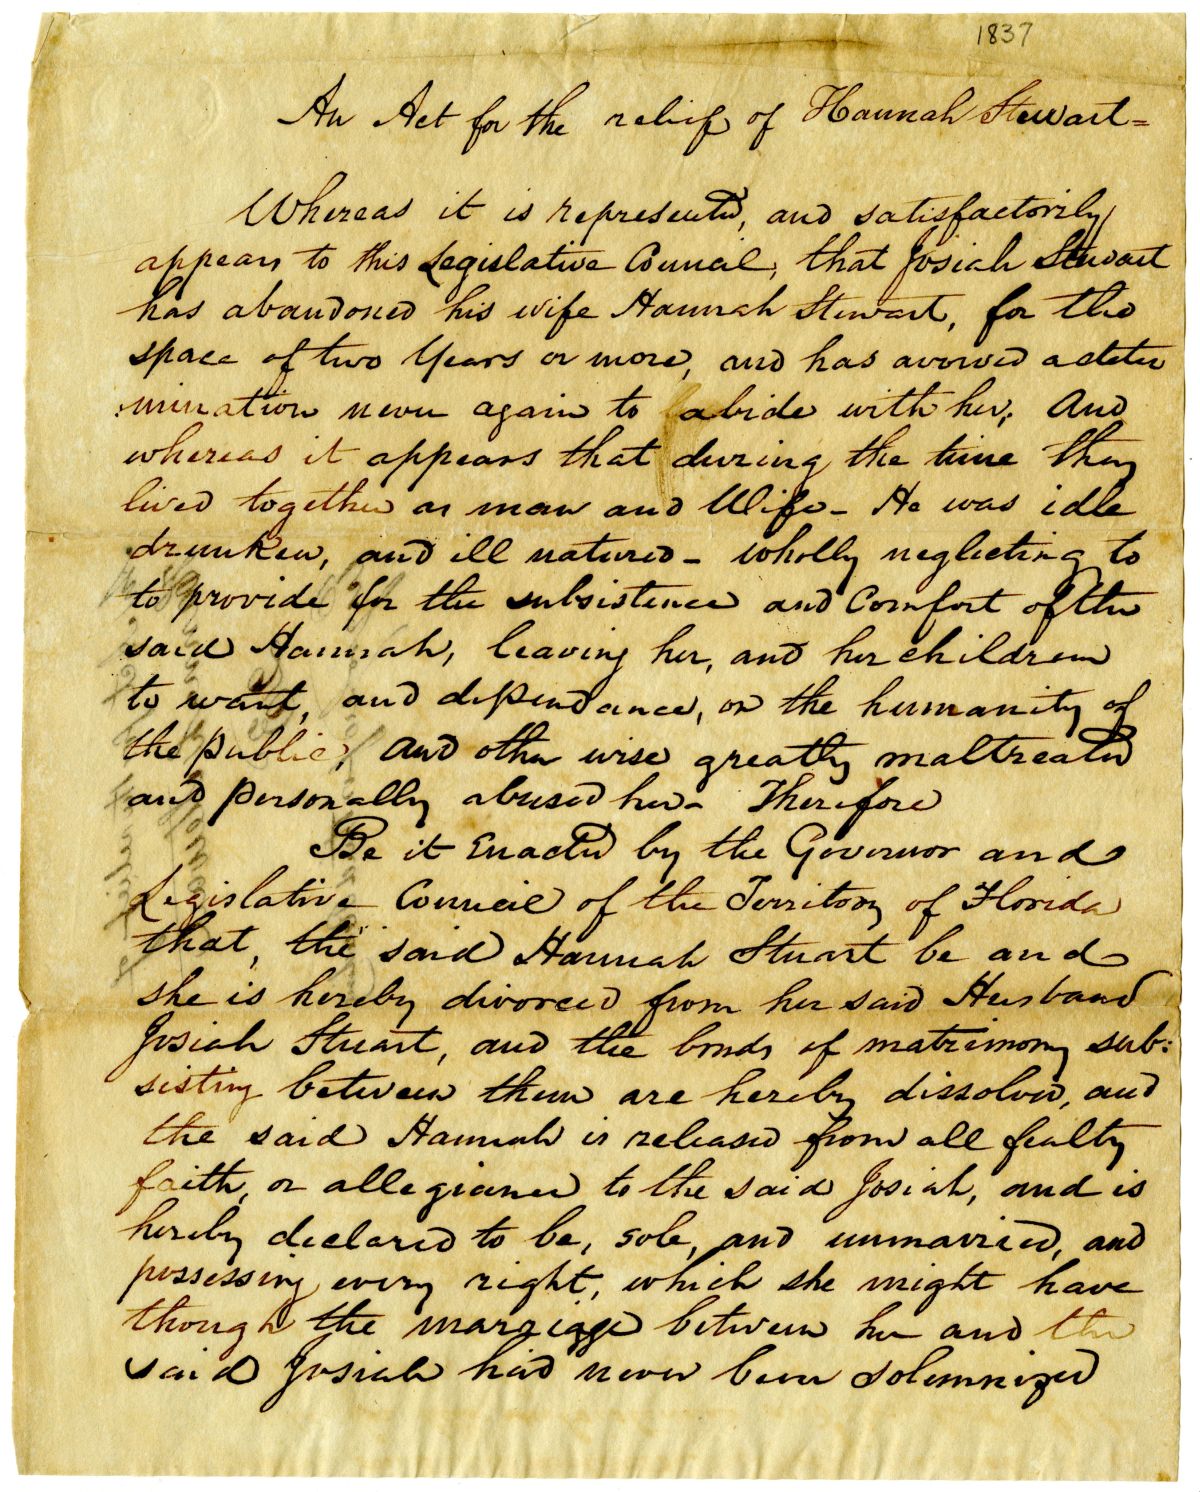 1837
An Act for the relief of Hannah Stewart =
Whereas it is represented, and satisfactorily
appears to this Legislative Council, that Josiah Stewart
has abandoned his wife Hannah Stewart, for the
space of two Years or more, and has avowed a deter
:mination never again to abide with her; And
whereas it appears that during the time they
lived together as man and Wife - He was idle
drunken, and ill natured - wholly neglecting to
to provide for the subsistence and Comfort of the
said Hannah, leaving her, and her children
to want, and dependance, on the humanity of
the public, and other wise greatly maltreated
and personally abused her - Therefore
Be it Enacted by the Governor and
Legislative Council of the Territory of Florida
that, the said Hannah Stuart be and
she is hereby divorced from her said Husband
Josiah Stuart, and the bonds of matrimony sub:
sisting between them are hereby dissolved, and
the said Hannah is released from all fealty
faith, or allegiance to the said Josiah, and is
hereby declared to be, sole, and unmarried, and
possessing every right, which she might have
though the marriage between her and the
said Josiah had never been solemnized